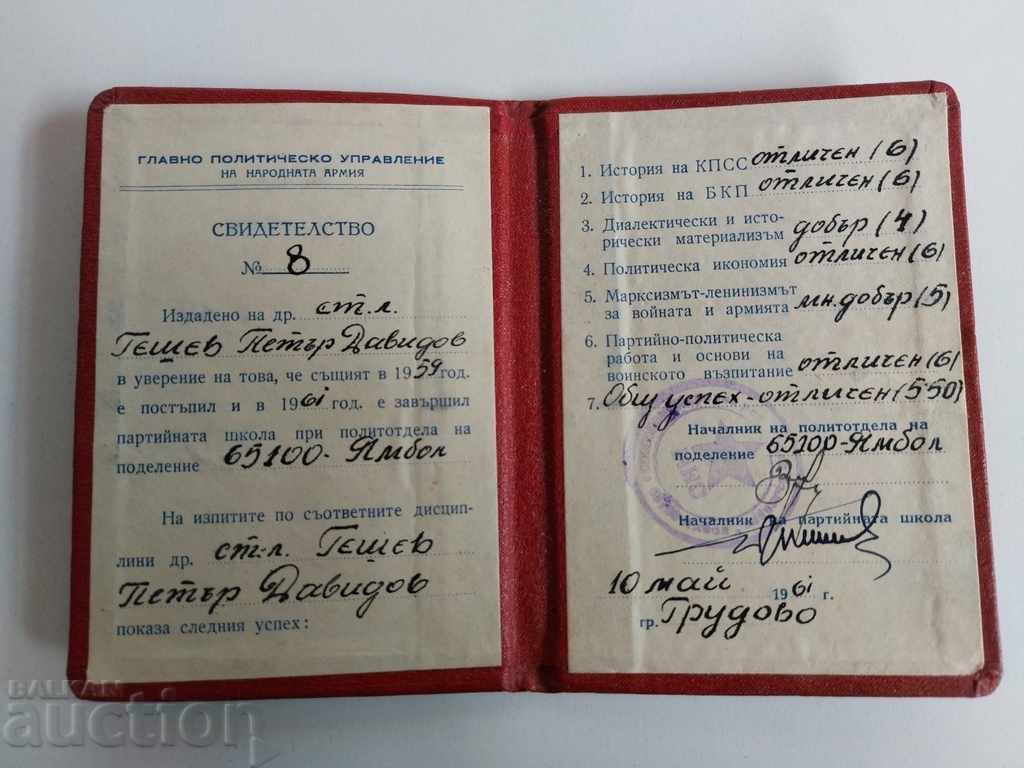 ГЛАВНО ПОЛИТИЧЕСКО УПРАВЛЕНИЕ
НА НАРОДНАТА АРМИЯ
СВИДЕТЕЛСТВО
№ 8
Издадено на др. ст.л.
Гешев Петър Давидов
в уверение на това, че същият в 1959 год.
е постъпил и в 1961 год. е завършил
партийната школа при политотдела на
поделение 65100-Ямбол
На изпитите по съответните дисцип-
лини др. ст-л. Гешев
Петър Давидов
показа следния успех:
1. История на КПСС отличен (6)
2. История на БКП отличен (6)
3. Диалектически и исто-
рически материализъм добър (4)
4. Политическа икономия отличен (6)
5. Марксизмът-ленинизмът
за войната и армията мн. добър (5)
6. Партийно-политическа
работа и основи на
воинското възпитание отличен (6)
7. Общ успех - отличен (5.50)
Началник на политотдела на
поделение 65200-Ямбол
Началник на партийната школа
10 май 1961 г.
гр. Грудово
BALKAN
auction